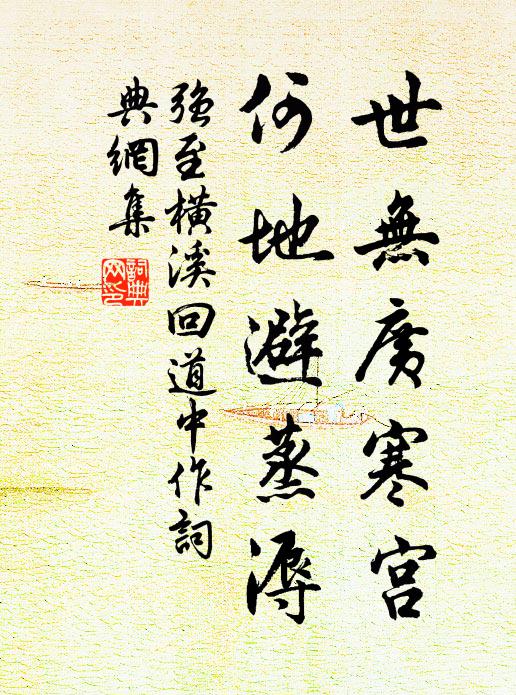 世無廣寒宮
何地避蒸溽
強至橫溪回道中作詞
典網集
詞典
网印